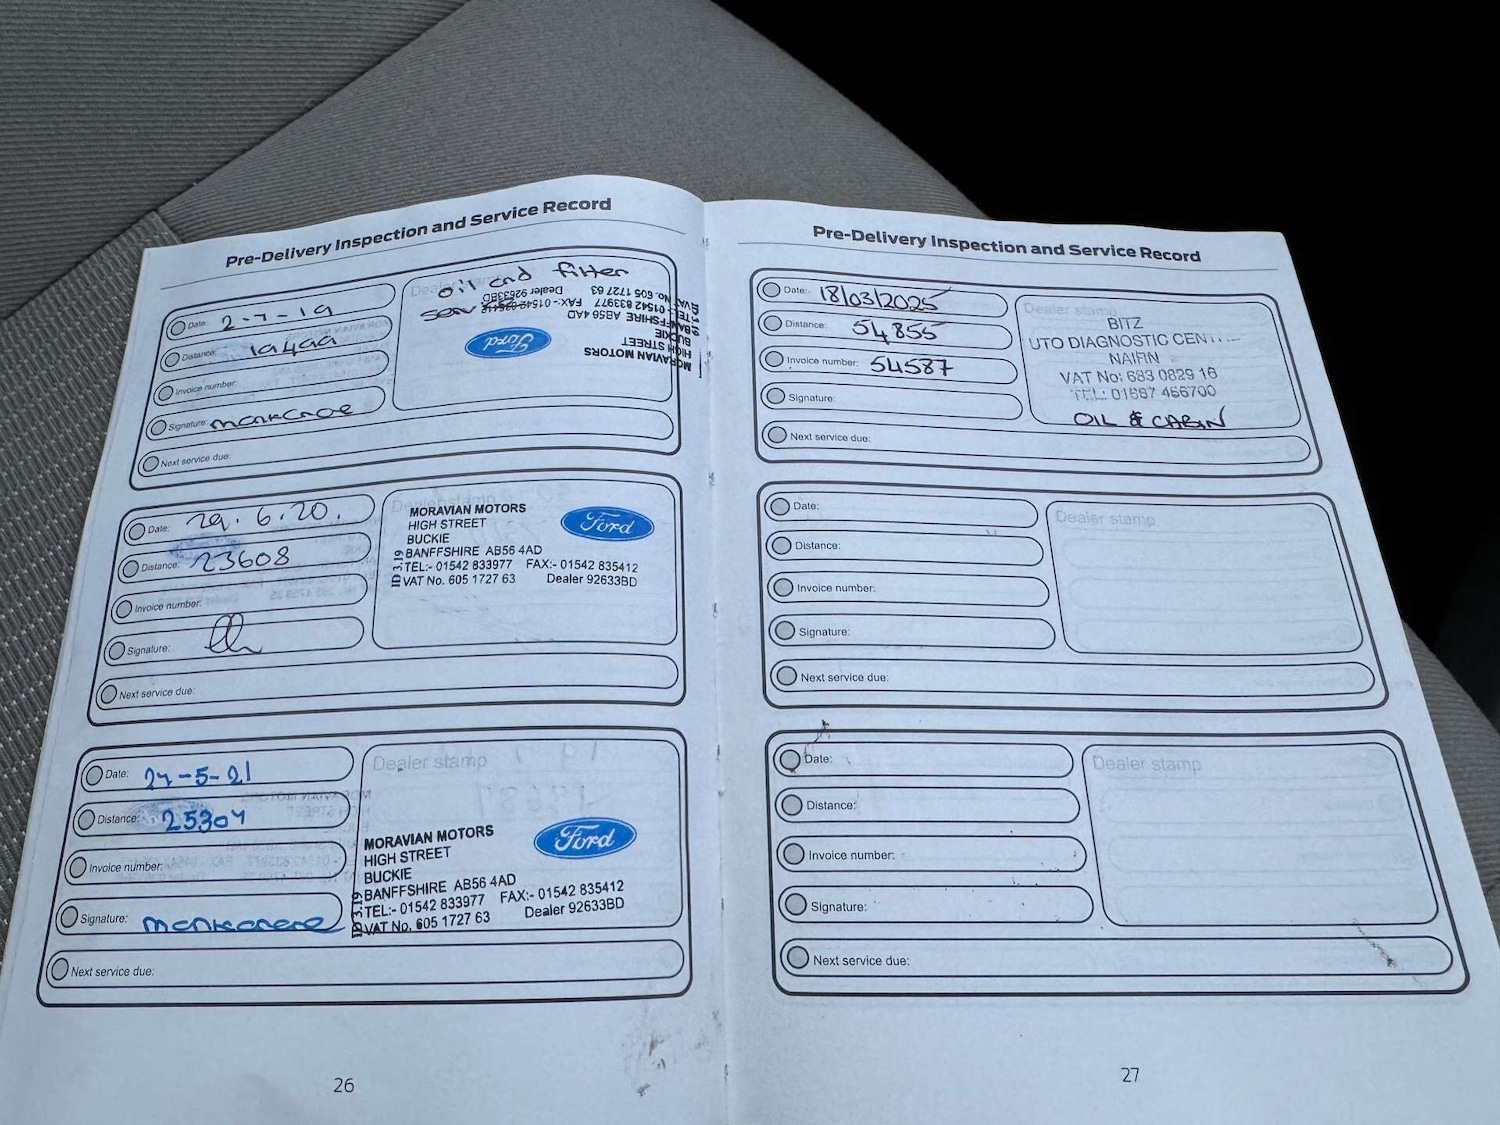 Pre-Delivery Inspection and Service Record
Date: 2-7-19
Distance: 19499
Invoice number:
Signature:
Next service due:
oil and filter
Dealer stamp
MORAVIAN MOTORS
HIGH STREET
BUCKIE
BANFFSHIRE AB56 4AD
TEL:- 01542 833977 FAX:- 01542 835412
VAT No. 605 1727 63 Dealer 92633BD
Ford
Date: 29.6.20.
Distance: 23608
Invoice number:
Signature:
Next service due:
Dealer stamp
MORAVIAN MOTORS
HIGH STREET
BUCKIE
BANFFSHIRE AB56 4AD
TEL:- 01542 833977 FAX:- 01542 835412
VAT No. 605 1727 63 Dealer 92633BD
ID 3.19
Ford
Date: 27-5-21
Distance: 25307
Invoice number:
Signature:
Next service due:
Dealer stamp
MORAVIAN MOTORS
HIGH STREET
BUCKIE
BANFFSHIRE AB56 4AD
TEL:- 01542 833977 FAX:- 01542 835412
VAT No. 605 1727 63 Dealer 92633BD
ID 3.19
Ford
26
Pre-Delivery Inspection and Service Record
Date: 18/03/2025
Distance: 54855
Invoice number: 54587
Signature:
Next service due:
Dealer stamp
BITZ
UTO DIAGNOSTIC
NAIRN
VAT No: 683 0829 16
TEL: 01667 456700
OIL & CABIN
Date:
Distance:
Invoice number:
Signature:
Next service due:
Dealer stamp
Date:
Distance:
Invoice number:
Signature:
Next service due:
Dealer stamp
27